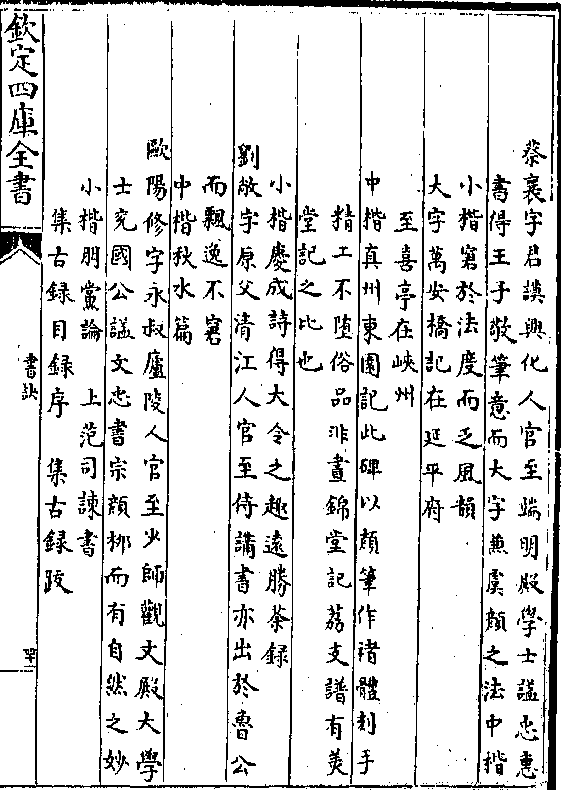 蔡襄字君謨興化人官至端明殿學士諡忠惠
書得王子敬筆意而大字兼虞顔之法中楷
小楷窘於法度而乏風韻
大字萬安橋記在延平府
至喜亭在峽州
中楷真州東園記此碑以顔筆作褚體刻手
精工不墮俗品非晝錦堂記荔支譜有美
堂記之比也
小楷慶成詩得大令之趣遠勝茶録
劉敞字原父清江人官至侍講書亦出於魯公
而飄逸不窘
中楷秋水篇
歐陽修字永叔廬陵人官至少師觀文殿大學
士兖國公諡文忠書宗顔栁而有自然之妙
小楷朋黨論　上范司諫書
集古録目録序　集古録跋
欽定四庫全書
書訣